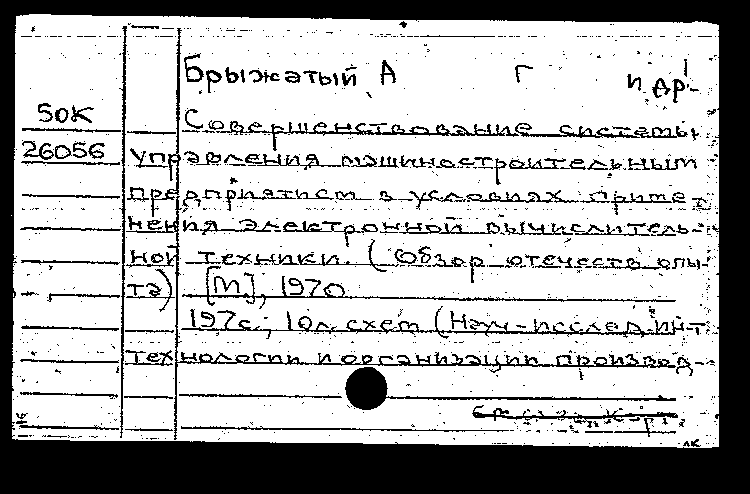 Брыжатый А Г и др.
50К
Совершенствование системы
26056
управления машиностроительным
предприятием в условиях приме-
нения электронной вычислитель-
ной техники. (Обзор отечеств опы-
та) [М], 1970
197с., 10л. схем (Науч-исслед. ин-т
технологии и организации производ-